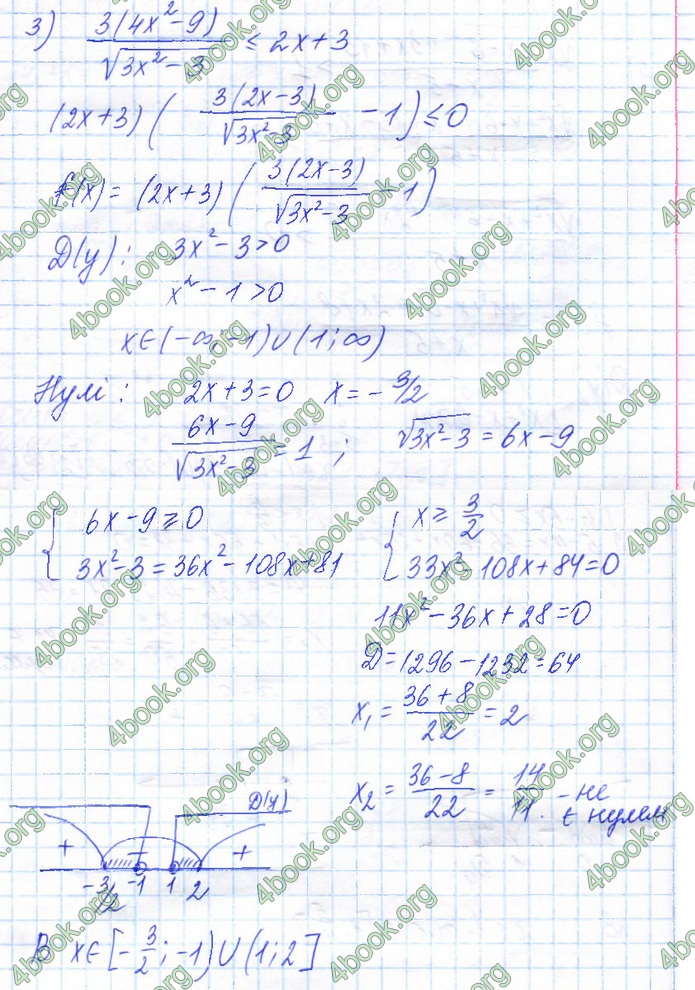 3) 3(4x²-9)/√(3x²-3) ≤ 2x+3
(2x+3)(3(2x-3)/√(3x²-3) - 1) ≤ 0
f(x) = (2x+3)(3(2x-3)/√(3x²-3) - 1)
D(y): 3x²-3>0
x²-1>0
x∈(-∞;-1)∪(1;∞)
Нулі: 2x+3=0 x=-3/2
(6x-9)/√(3x²-3) = 1; √(3x²-3) = 6x-9
{ 6x-9≥0
3x²-3=36x²-108x+81
{ x≥3/2
33x²-108x+84=0
11x²-36x+28=0
D=1296-1232=64
x₁ = (36+8)/22 = 2
x₂ = (36-8)/22 = 14/11. - не є нулем
D(y)
+ - +
-3/2 -1 1 2
В x∈[-3/2;-1)∪(1;2]
4book.org